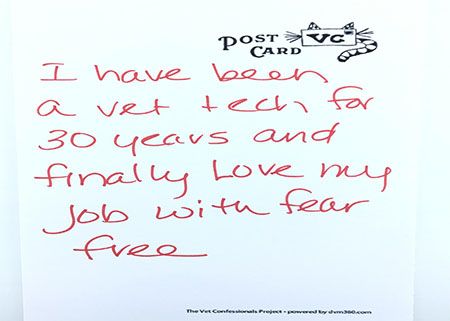 POST
CARD
VC
I have been
a vet tech for
30 years and
finally Love my
job with fear
free
The Vet Confessionals Project - powered by dvm360.com